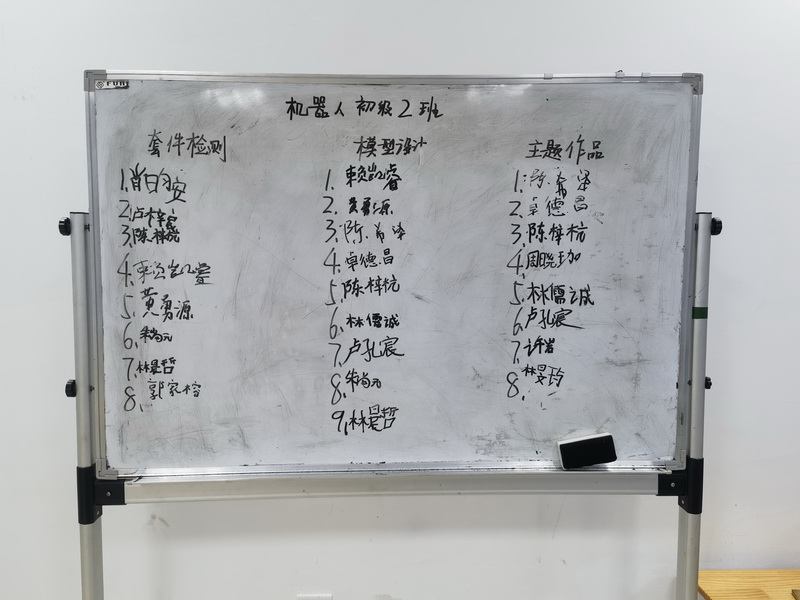 机器人初级2班
套件检测
1.肖
2.卢梓宸
3.陈梓杭
4.赖贤凯睿
5.黄勇源
6.朱尚元
7.林是哲
8.郭家榕
模型设计
1.赖凯睿
2.黄勇源
3.陈希泽
4.卓德昌
5.陈梓杭
6.林儒诚
7.卢孔宸
8.朱尚元
9.林是哲
主题作品
1.陈希泽
2.卓德昌
3.陈梓杭
4.周晓珈
5.林儒诚
6.卢孔宸
7.许岩
8.林旻玲